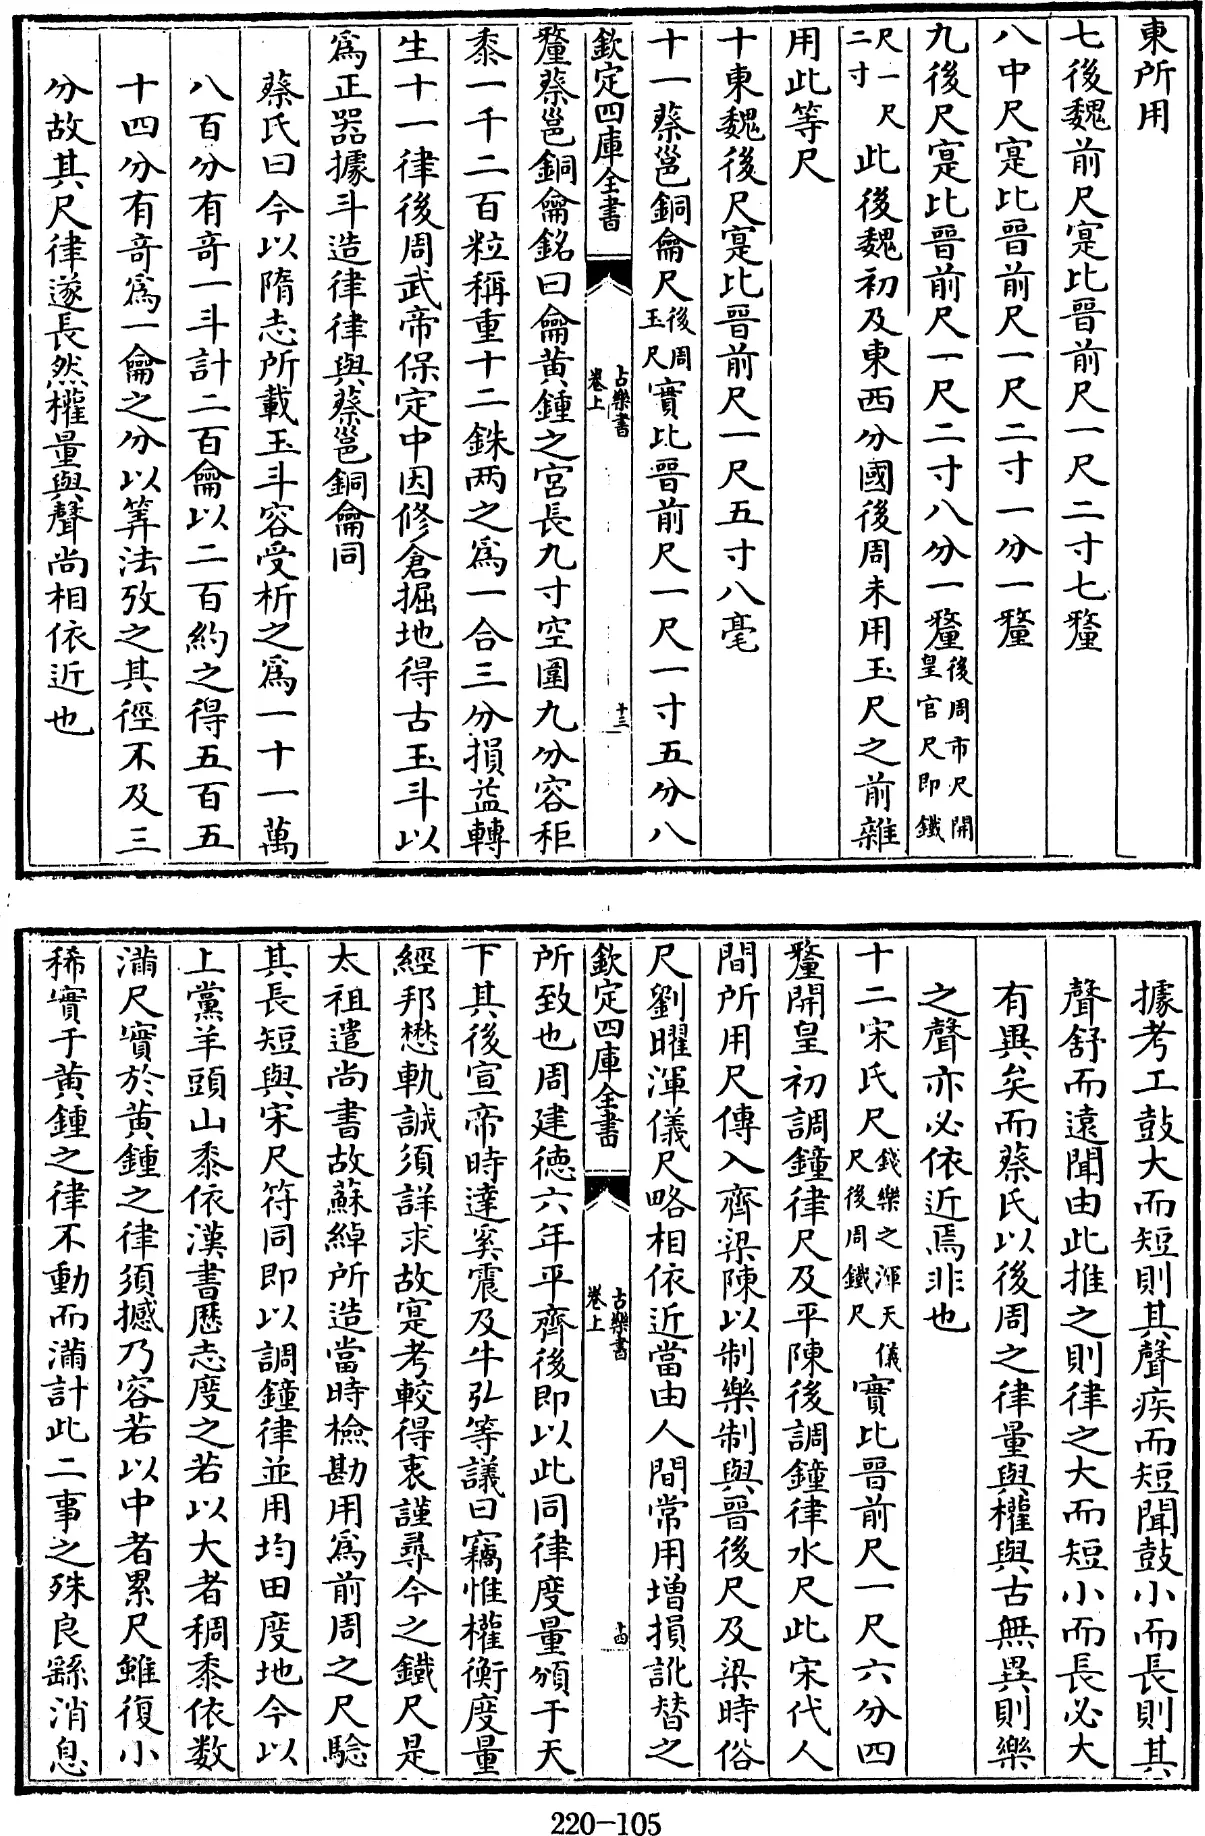 東所用
七後魏前尺寔比晉前尺一尺二寸七釐
八中尺寔比晉前尺一尺二寸一分一釐
九後尺寔比晉前尺一尺二寸八分一釐後周市尺開皇官尺即鐵
尺一尺二寸此後魏初及東西分國後周未用玉尺之前雜
用此等尺
十東魏後尺寔比晉前尺一尺五寸八毫
十一蔡邕銅龠尺後周玉尺實比晉前尺一尺一寸五分八
欽定四庫全書 古樂書卷上 十三
釐蔡邕銅龠銘曰龠黃鍾之宮長九寸空圍九分容秬
黍一千二百粒稱重十二銖兩之為一合三分損益轉
生十一律後周武帝保定中因修倉掘地得古玉斗以
為正器據斗造律律與蔡邕銅龠同
蔡氏曰今以隋志所載玉斗容受析之為一十一萬
八百分有奇一斗計二百龠以二百約之得五百五
十四分有奇為一龠之分以筭法攷之其徑不及三
分故其尺律遂長然權量與聲尚相依近也
據考工鼓大而短則其聲疾而短聞鼓小而長則其
聲舒而遠聞由此推之則律之大而短小而長必大
有異矣而蔡氏以後周之律量與權與古無異則樂
之聲亦必依近焉非也
十二宋氏尺錢樂之渾天儀尺後周鐵尺實比晉前尺一尺六分四
釐開皇初調鐘律尺及平陳後調鐘律水尺此宋代人
間所用尺傳入齊梁陳以制樂制與晉後尺及梁時俗
尺劉曜渾儀尺略相依近當由人間常用增損訛替之
欽定四庫全書 古樂書卷上 十四
所致也周建德六年平齊後即以此同律度量頒于天
下其後宣帝時達奚震及牛弘等議曰竊惟權衡度量
經邦懋軌誠須詳求故寔考較得衷謹尋今之鐵尺是
太祖遣尚書故蘇綽所造當時檢勘用為前周之尺驗
其長短與宋尺符同即以調鐘律並用均田度地今以
上黨羊頭山黍依漢書歷志度之若以大者稠黍依數
滿尺實於黃鍾之律須撼乃容若以中者累尺雖復小
稀實于黃鍾之律不動而滿計此二事之殊良繇消息
220-105